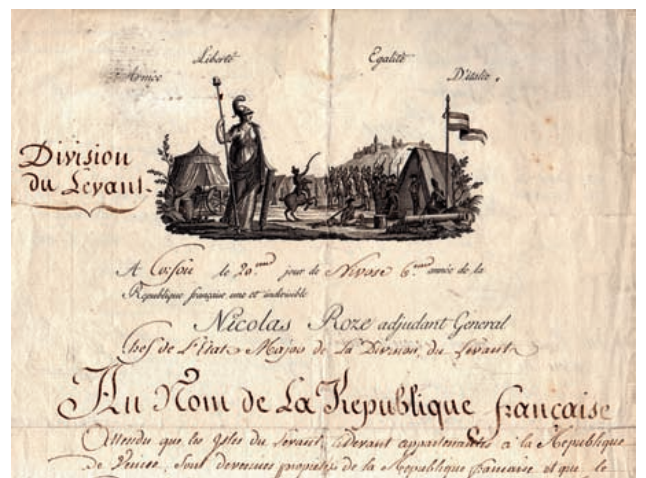 Liberté Egalité
Armée D'italie.
Division
du Levant
A Corfou le 20.eme jour de Nivose 6.eme année de la
Republique française une et indivisible
Nicolas Roze adjudant General
Chef de L'État Major de La Division du Levant
Au Nom de La Republique française
Attendu que les Isles du Levant, cidevant appartenantes à la Republique
de Venise, sont devenues propriétés de la Republique francaise et que le